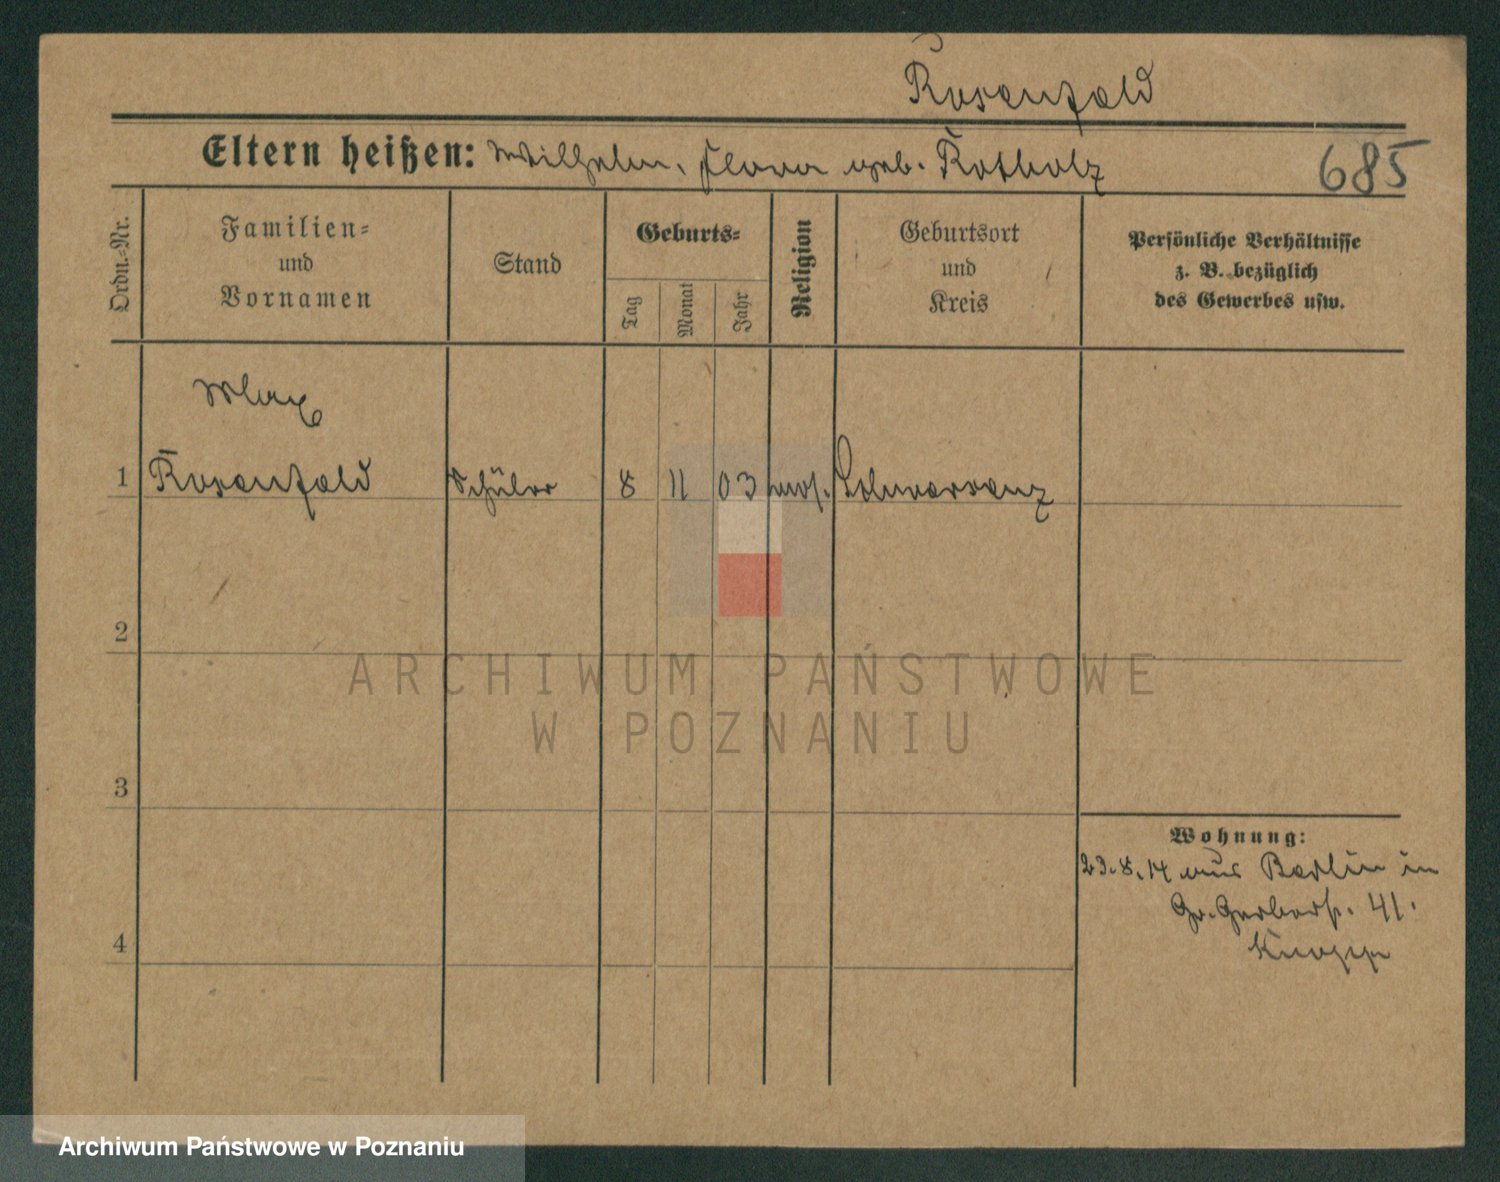 Rosenfeld
Eltern heißen: Wilhelm, Flora geb. Rotholz
685
Ordn.-Nr.
Familien-
und
Vornamen
Stand
Geburts-
Tag
Monat
Jahr
Religion
Geburtsort
und
Kreis
Persönliche Verhältnisse
z. B. bezüglich
des Gewerbes usw.
Max
1 Rosenfeld Schüler 8 11 03 mos. Schwersenz
2
ARCHIWUM PAŃSTWOWE
W POZNANIU
3
Wohnung:
23.8.14 aus Berlin in
Gr. Gerberstr. 41.
4
Knopp
Archiwum Państwowe w Poznaniu